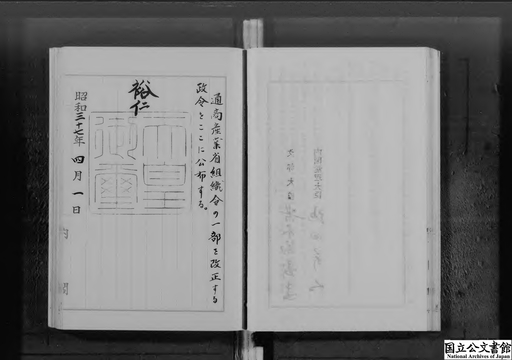 通商産業省組織令の一部を改正する
政令をここに公布する。
裕仁
天皇御璽
昭和三十七年四月一日
内閣
国立公文書館
National Archives of Japan